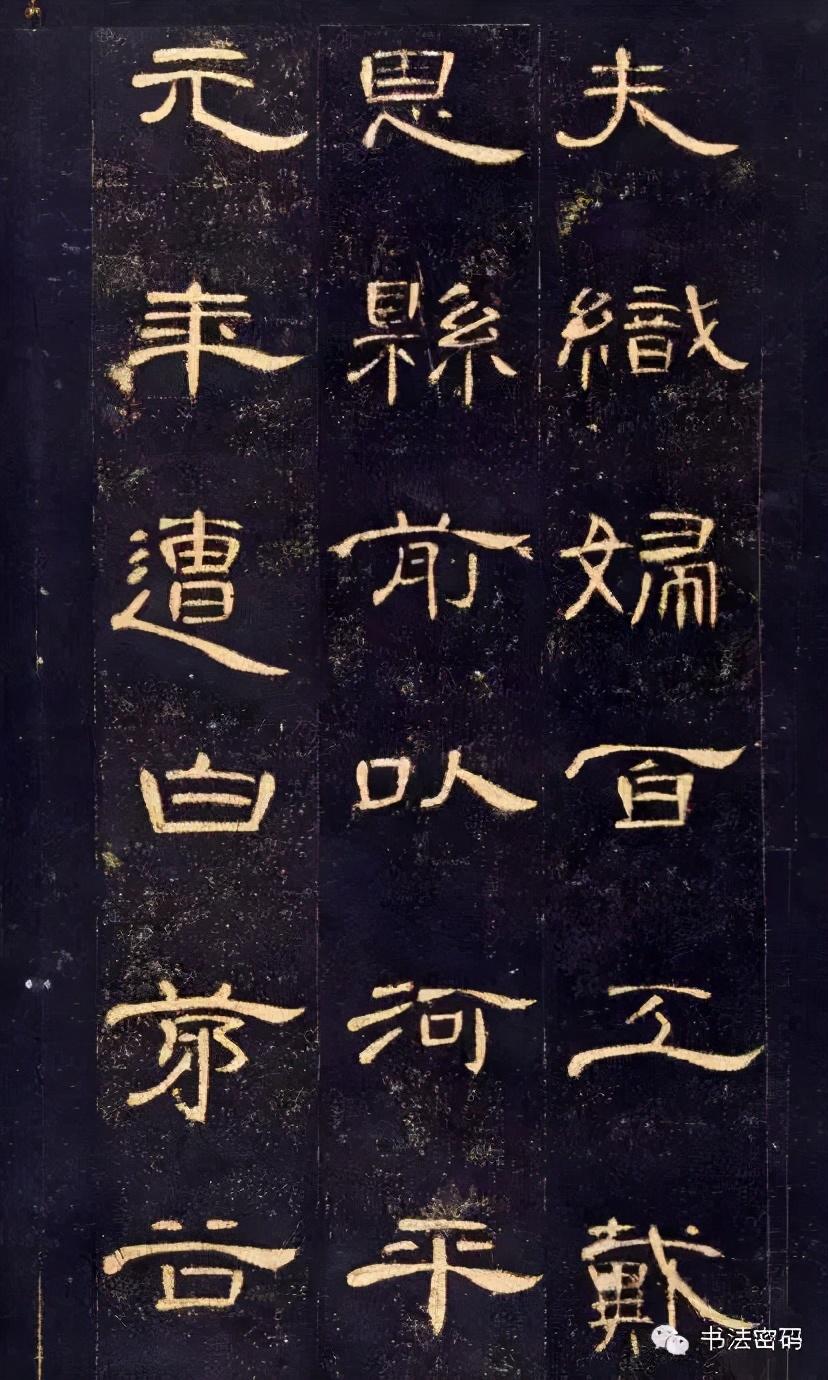 夫織婦百工戴
恩縣前以河平
元年遭白茅谷
书法密码